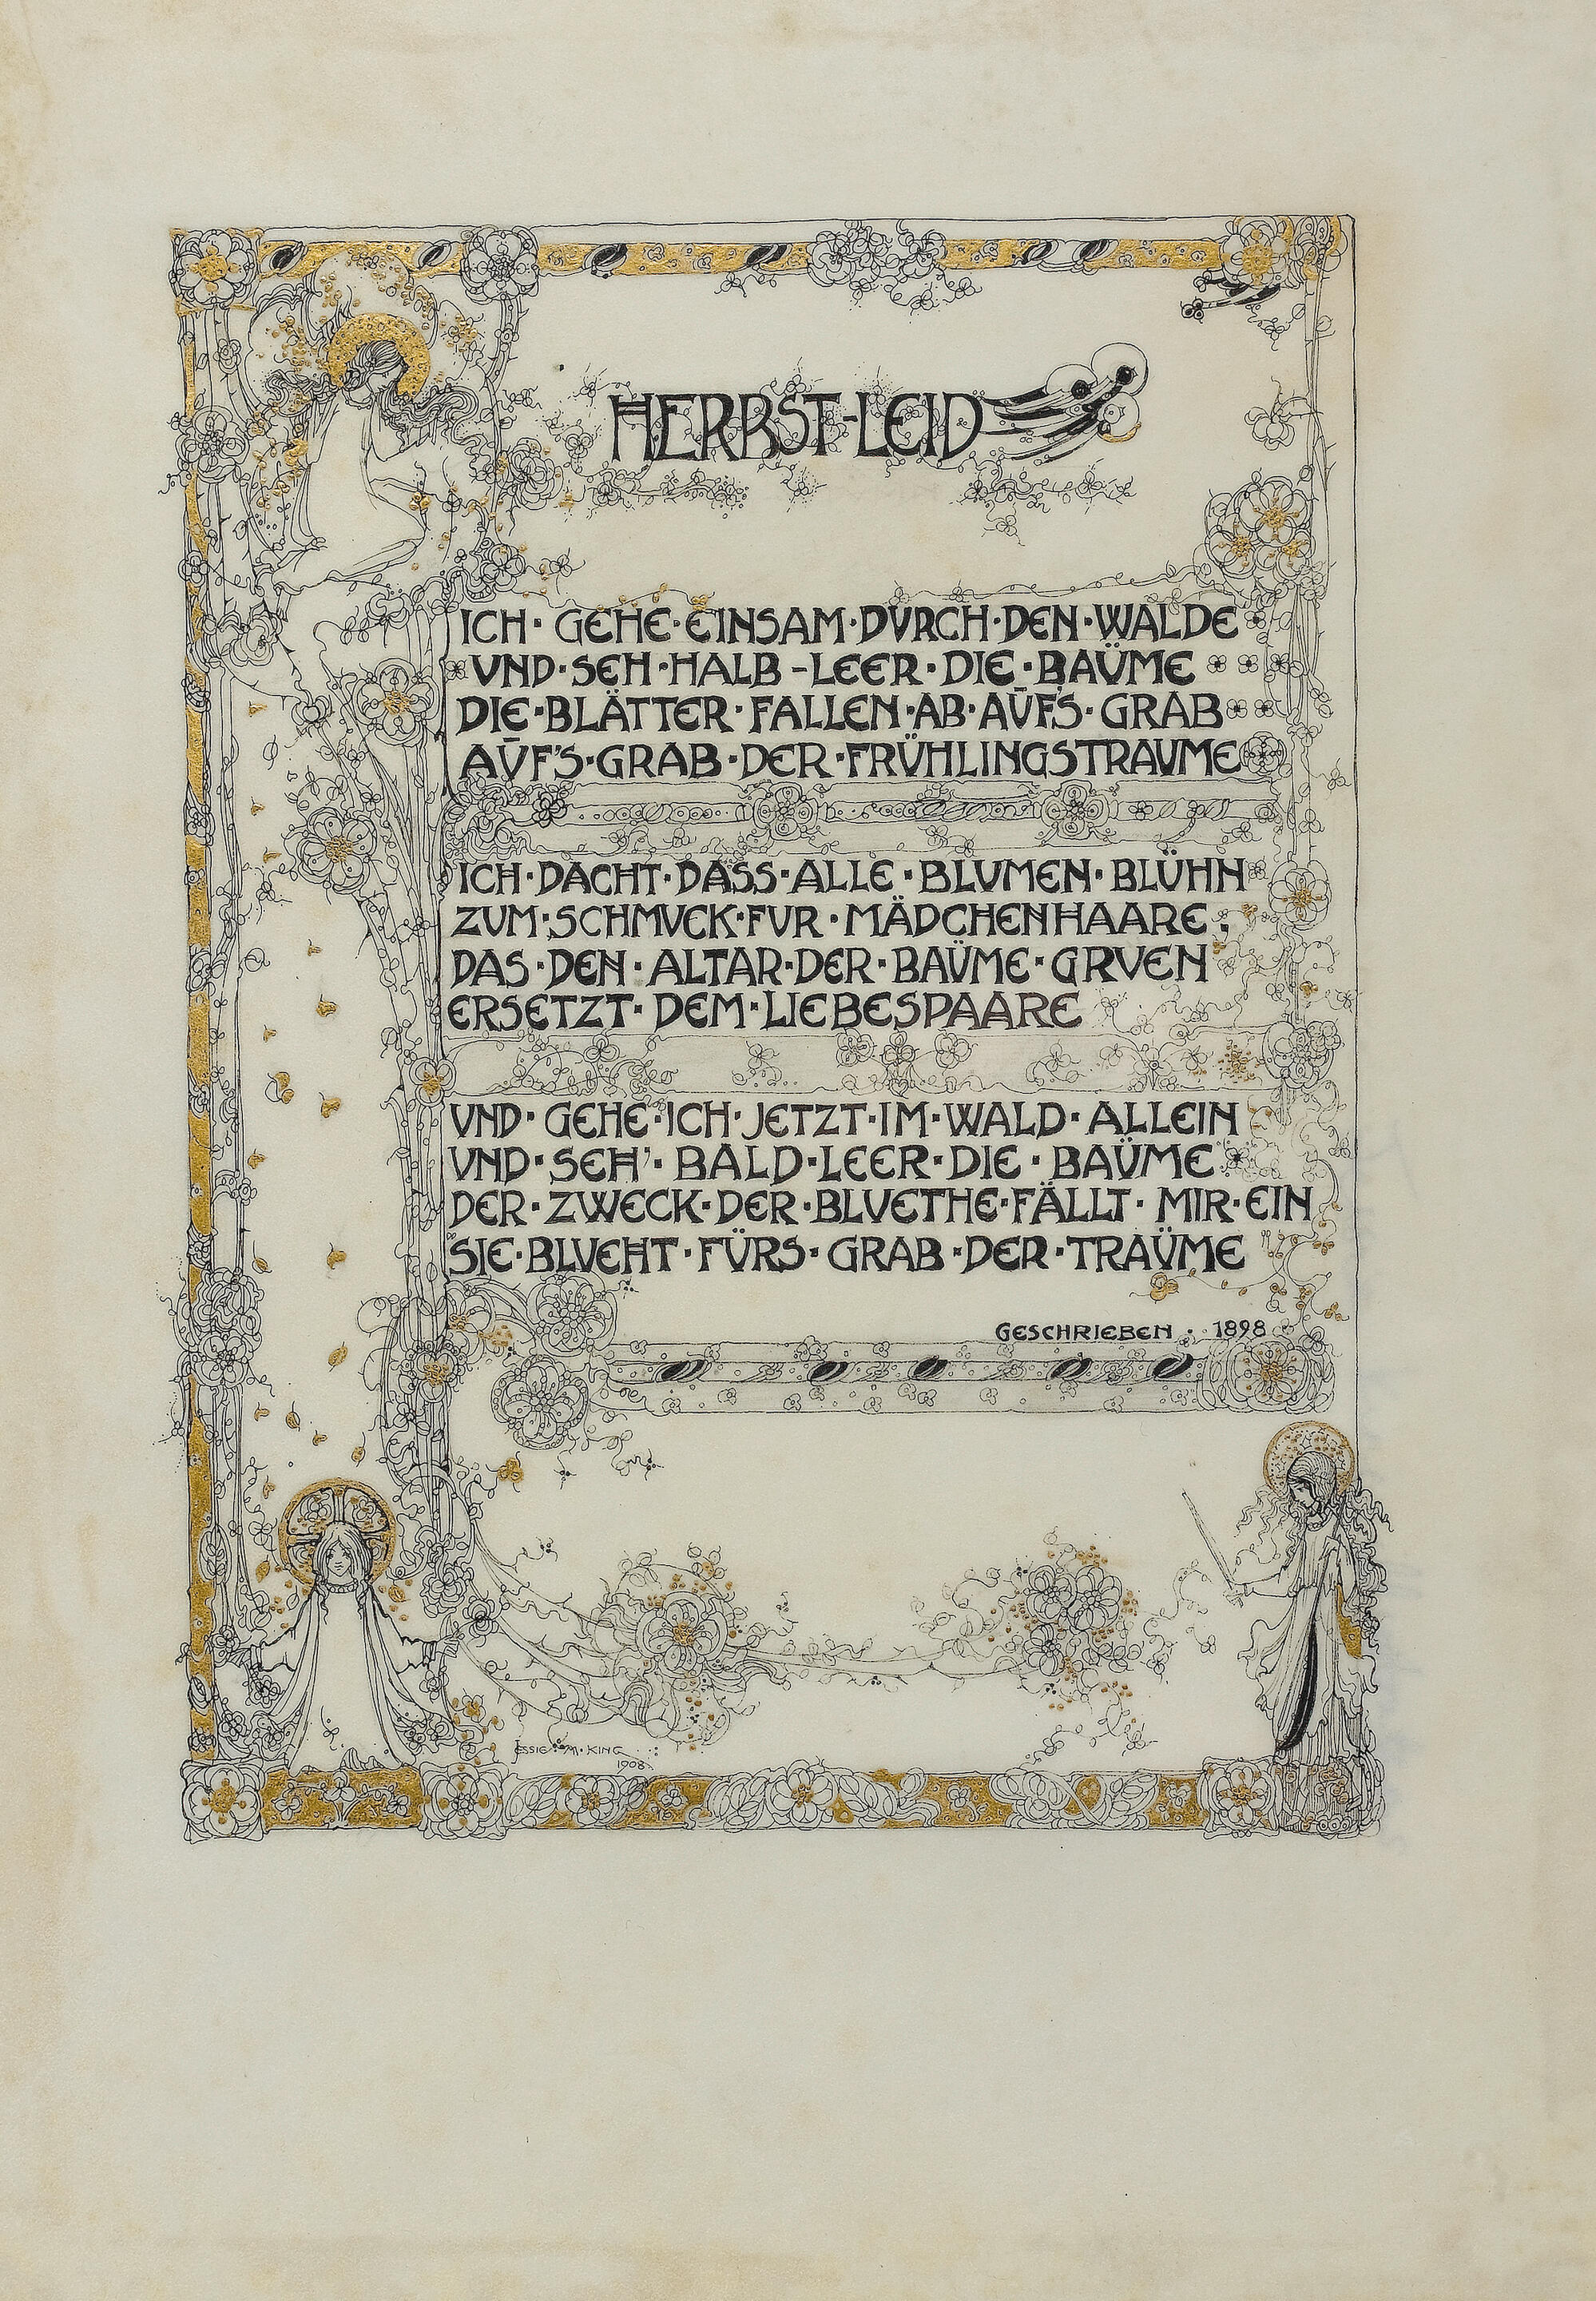 HERBST-LEID
ICH · GEHE · EINSAM · DVRCH · DEN · WALDE
VND · SEH · HALB - LEER · DIE · BAÜME
DIE · BLÄTTER · FALLEN · AB · AŪF'S · GRAB
AŪF'S · GRAB · DER · FRÜHLINGSTRAUME
ICH · DACHT · DASS · ALLE · BLUMEN · BLÜHN
ZUM · SCHMVCK · FUR · MÄDCHENHAARE ;
DAS · DEN · ALTAR · DER · BAÜME · GRVEN
ERSETZT · DEM · LIEBESPAARE
VND · GEHE · ICH · JETZT · IM · WALD · ALLEIN
VND · SEH' · BALD · LEER · DIE · BAÜME
DER · ZWECK · DER · BLVETHE · FÄLLT · MIR · EIN
"SIE · BLVEHT · FÜRS · GRAB · DER · TRAÜME"
GESCHRIEBEN · 1898
JESSIE · M · KING
1908